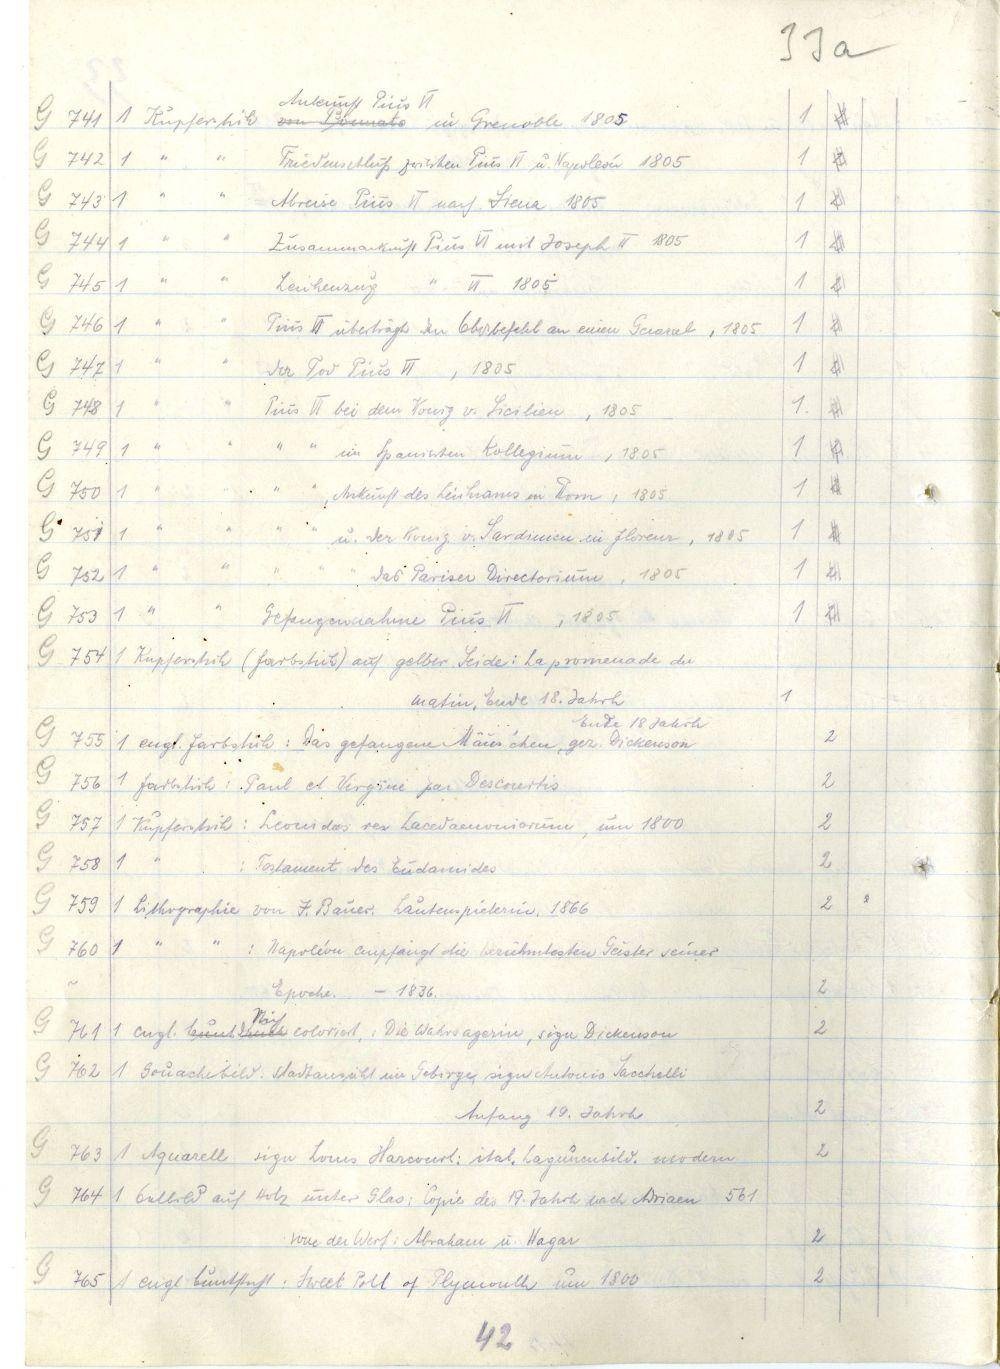 33a
Ankunft Pius VI
G 741 1 Kupferstich von Bonnato in Grenoble 1805 1
G 742 1 " " Friedenschluß zwischen Pius VI u. Napoleon 1805 1
G 743 1 " " Abreise Pius VI nach Siena 1805 1
G 744 1 " " Zusammenkunft Pius VI mit Joseph II 1805 1
G 745 1 " " Leichenzug " VI 1805 1
G 746 1 " " Pius VI überträgt den Oberbefehl an einen General, 1805 1
G 747 1 " " der Tod Pius VI, 1805 1
G 748 1 " " Pius VI bei dem König v. Sicilien, 1805 1.
G 749 1 " " " " im spanischen Kollegium, 1805 1
G 750 1 " " " ", Ankunft des Leichnams in Rom, 1805 1
G 751 1 " " " " u. der König v. Sardinien in Florenz, 1805 1
G 752 1 " " " " " das Pariser Directorium, 1805 1
G 753 1 " " Gefangennahme Pius VI, 1805 1
G 754 1 Kupferstich (Farbstich) auf gelber Seide: La promenade du
matin, Ende 18. Jahrh 1
Ende 18 Jahrh
G 755 1 engl. Farbstich: Das gefangene Mäuschen, gez. Dickenson 2
G 756 1 Farbstich: Paul et Virginie par Descourtis 2
G 757 1 Kupferstich: Leonidas rex Lacedaemoniorum, um 1800 2
G 758 1 " : Testament des Eudamides 2
G 759 1 Lithographie von F. Bauer. Lautenspielerin, 1866 2
G 760 1 " " : Napoléon empfängt die berühmtesten Geister seiner
Epoche. – 1836. 2
Stich
G 761 1 engl. buntdruck coloriert,: Die Wahrsagerin, sign Dickenson 2
G 762 1 Gouachebild. Stadtansicht im Gebirge, sign Antonio Sacchelli
Anfang 19. Jahrh 2
G 763 1 Aquarell sign Louis Harcourt: ital. Lagunenbild. modern 2
G 764 1 Oelbild auf Holz unter Glas: Copie des 19. Jahrh nach Adriaen 561
van der Werf: Abraham u. Hagar 2
G 765 1 engl. buntstich: Sweet Poll of Plymouth um 1800 2
42